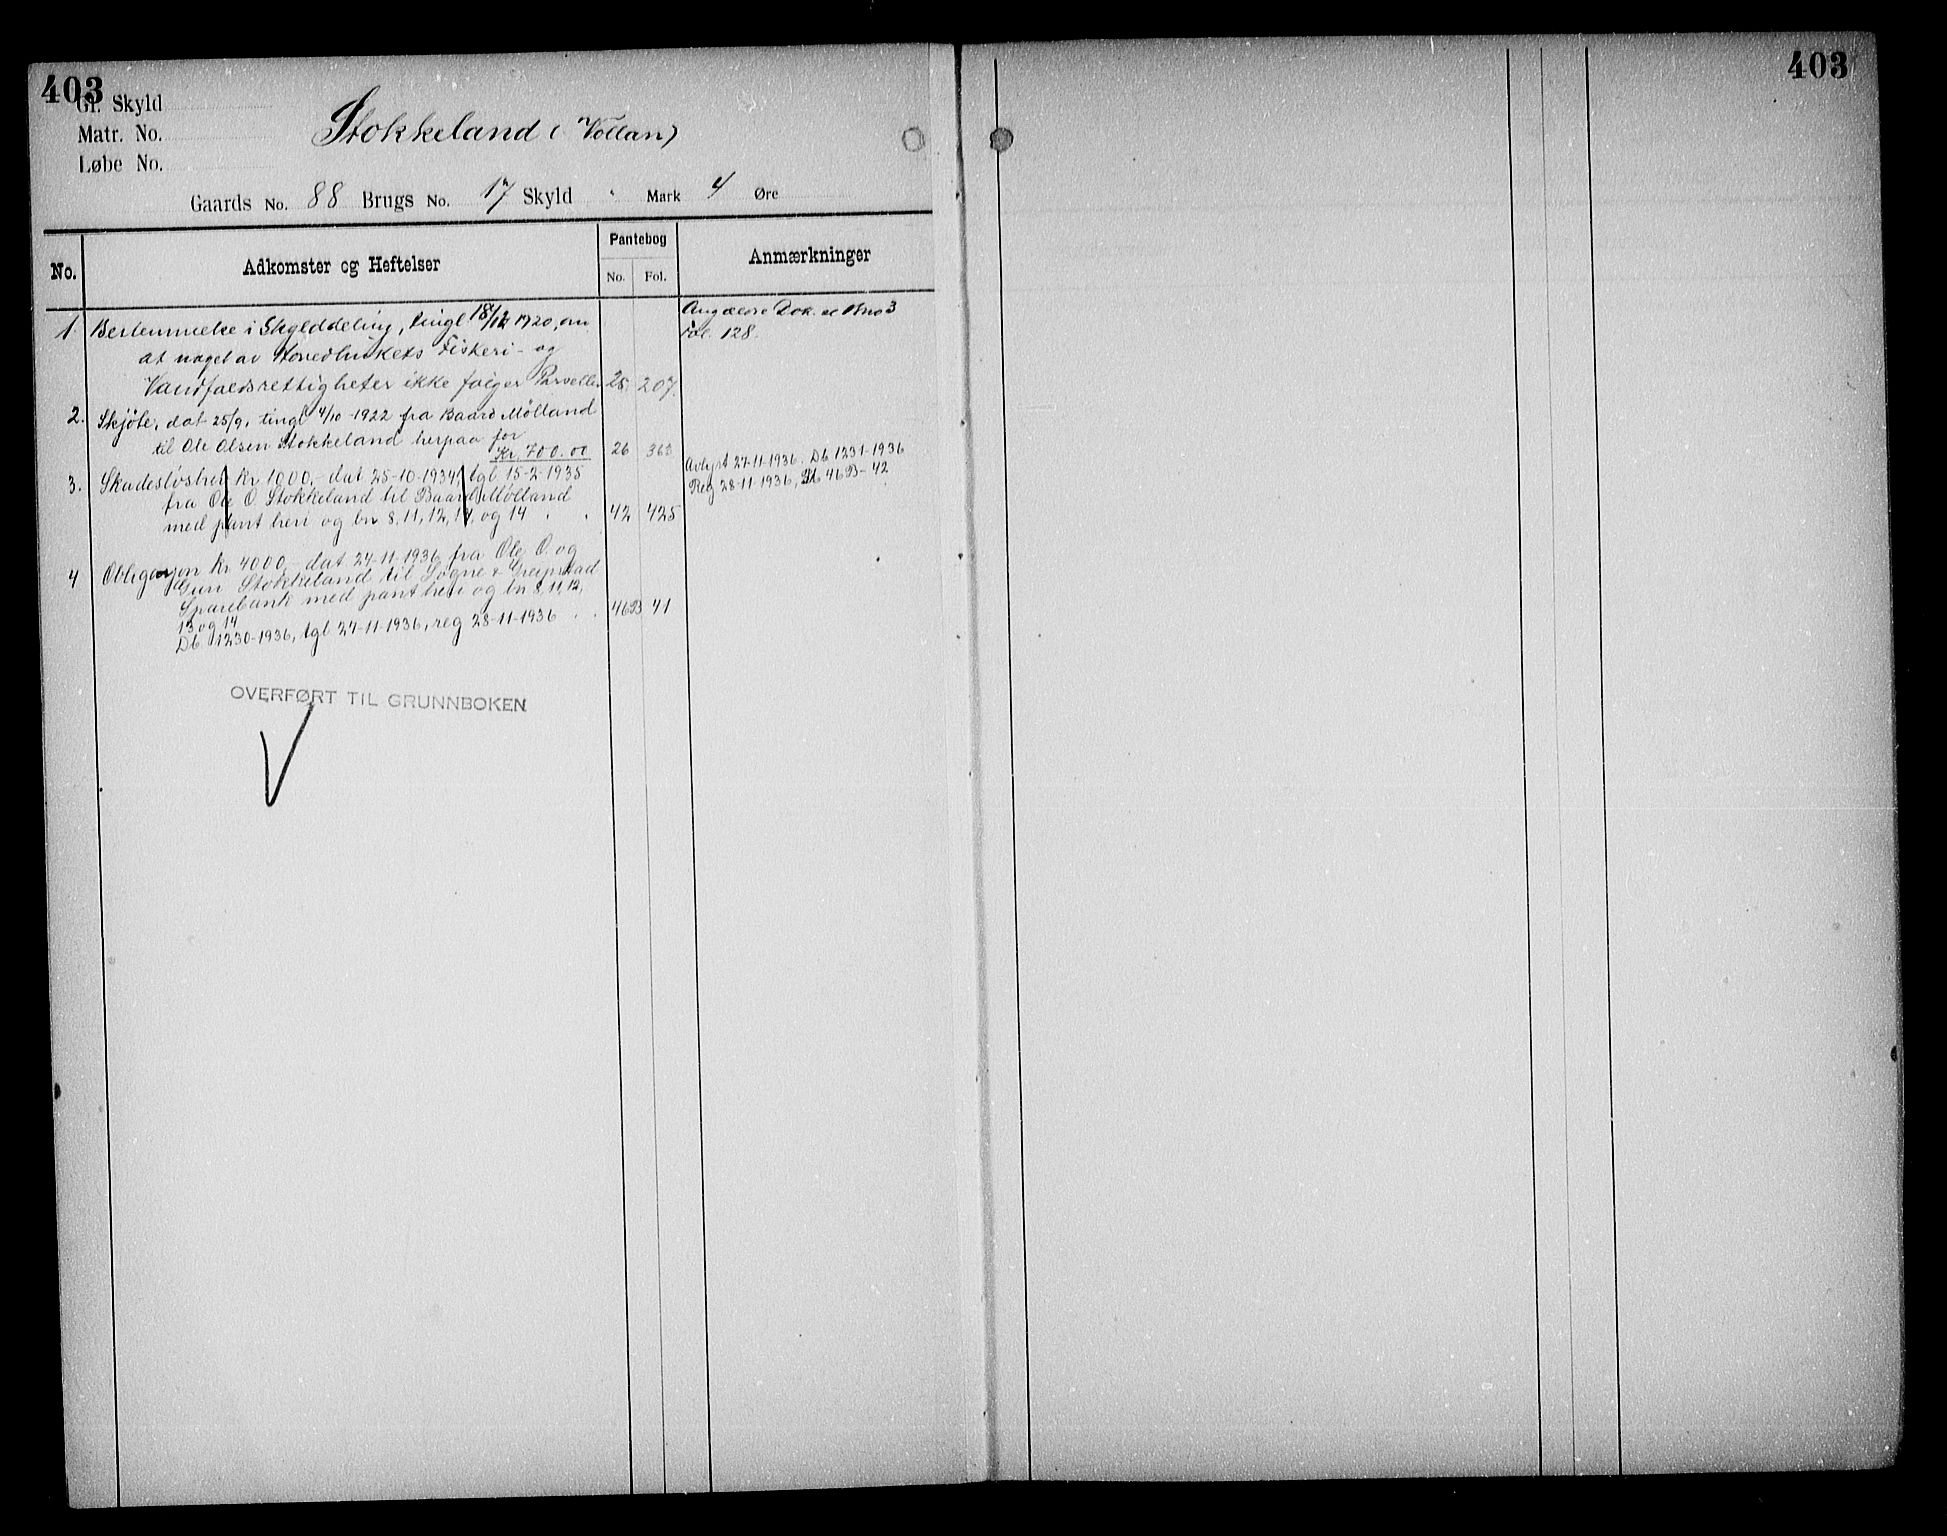 403
403
Gl. Skyld
Matr. No.
Løbe No.
Stokkeland (Vollan)
Gaards No. 88 Brugs No. 17 Skyld " Mark 4 Øre
No.
Adkomster og Heftelser
Pantebog
No. Fol.
Anmærkninger
1 Bestemmelse i Skylddeling, tingl 18/12 1920, om
at noget av Hovedbrukets Fiskeri- og
Vandfaldsrettigheter ikke følger Parcellen 25 207.
Angaaende Dok. se Bno 3
Fol. 128.
2. Skjøte, dat 25/9, tingl 4/10 1922 fra Baard Mølland
til Ole Olsen Stokkeland herpaa for
Kr. 700.00 26 363
3. Skadesløsbrev kr 1000,- dat 25-10-1934, tgl 15-2-1935
fra Ole O. Stokkeland til Baard Mølland
med pant heri og bn 8, 11, 12, 13, og 14 . . 42 425
Avlyst 27-11-1936. Db 1231-1936
Reg 28-11-1936, Pb 46B-42
4 Obligasjon kr 4000,- dat 24-11-1936 fra Ole O. og
Guri Stokkeland til Søgne & Greipstad
Sparebank med pant heri og bn 8, 11, 12,
13 og 14
Db. 1230-1936, tgl 27-11-1936, reg 28-11-1936 . . 46B 41
OVERFØRT TIL GRUNNBOKEN